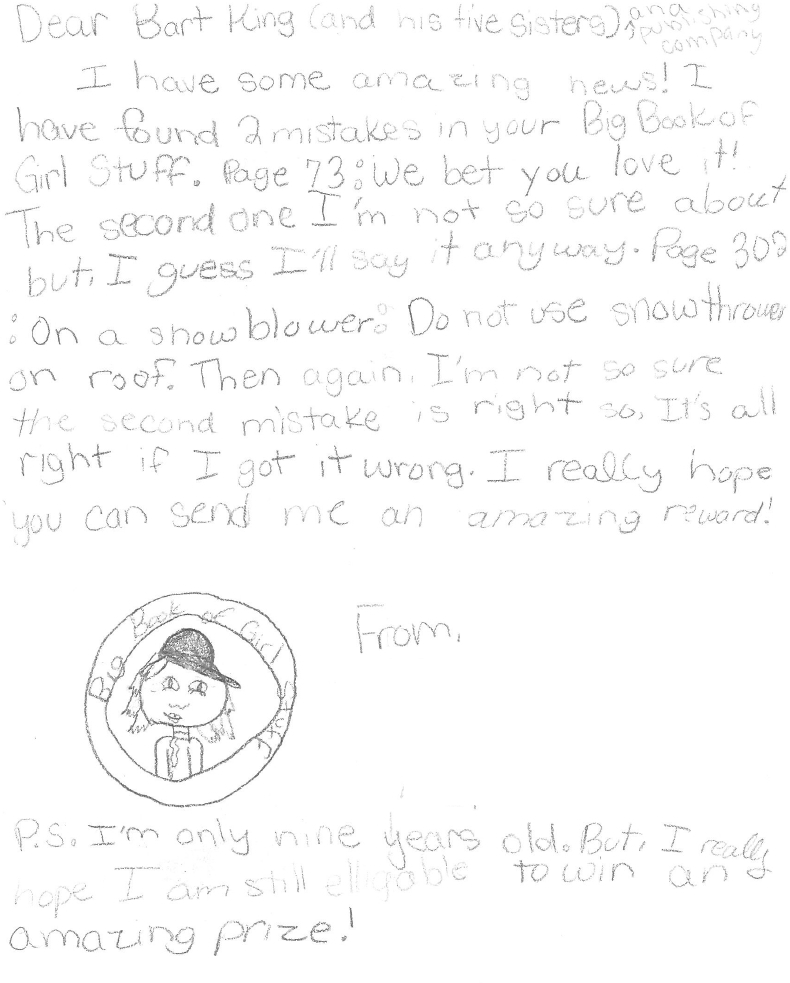 Dear Bart King (and his five sisters), and publishing company
I have some amazing news! I
have found 2 mistakes in your Big Book of
Girl Stuff. Page 73: We bet you love it!
The second one I'm not so sure about
but, I guess I'll say it anyway. Page 302
: On a snowblower: Do not use snowthrower
on roof. Then again, I'm not so sure
the second mistake is right so, It's all
right if I got it wrong. I really hope
you can send me an amazing reward!
Big Book of Girl Stuff
From,
P.S. I'm only nine years old. But, I really
hope I am still elligable to win an
amazing prize!